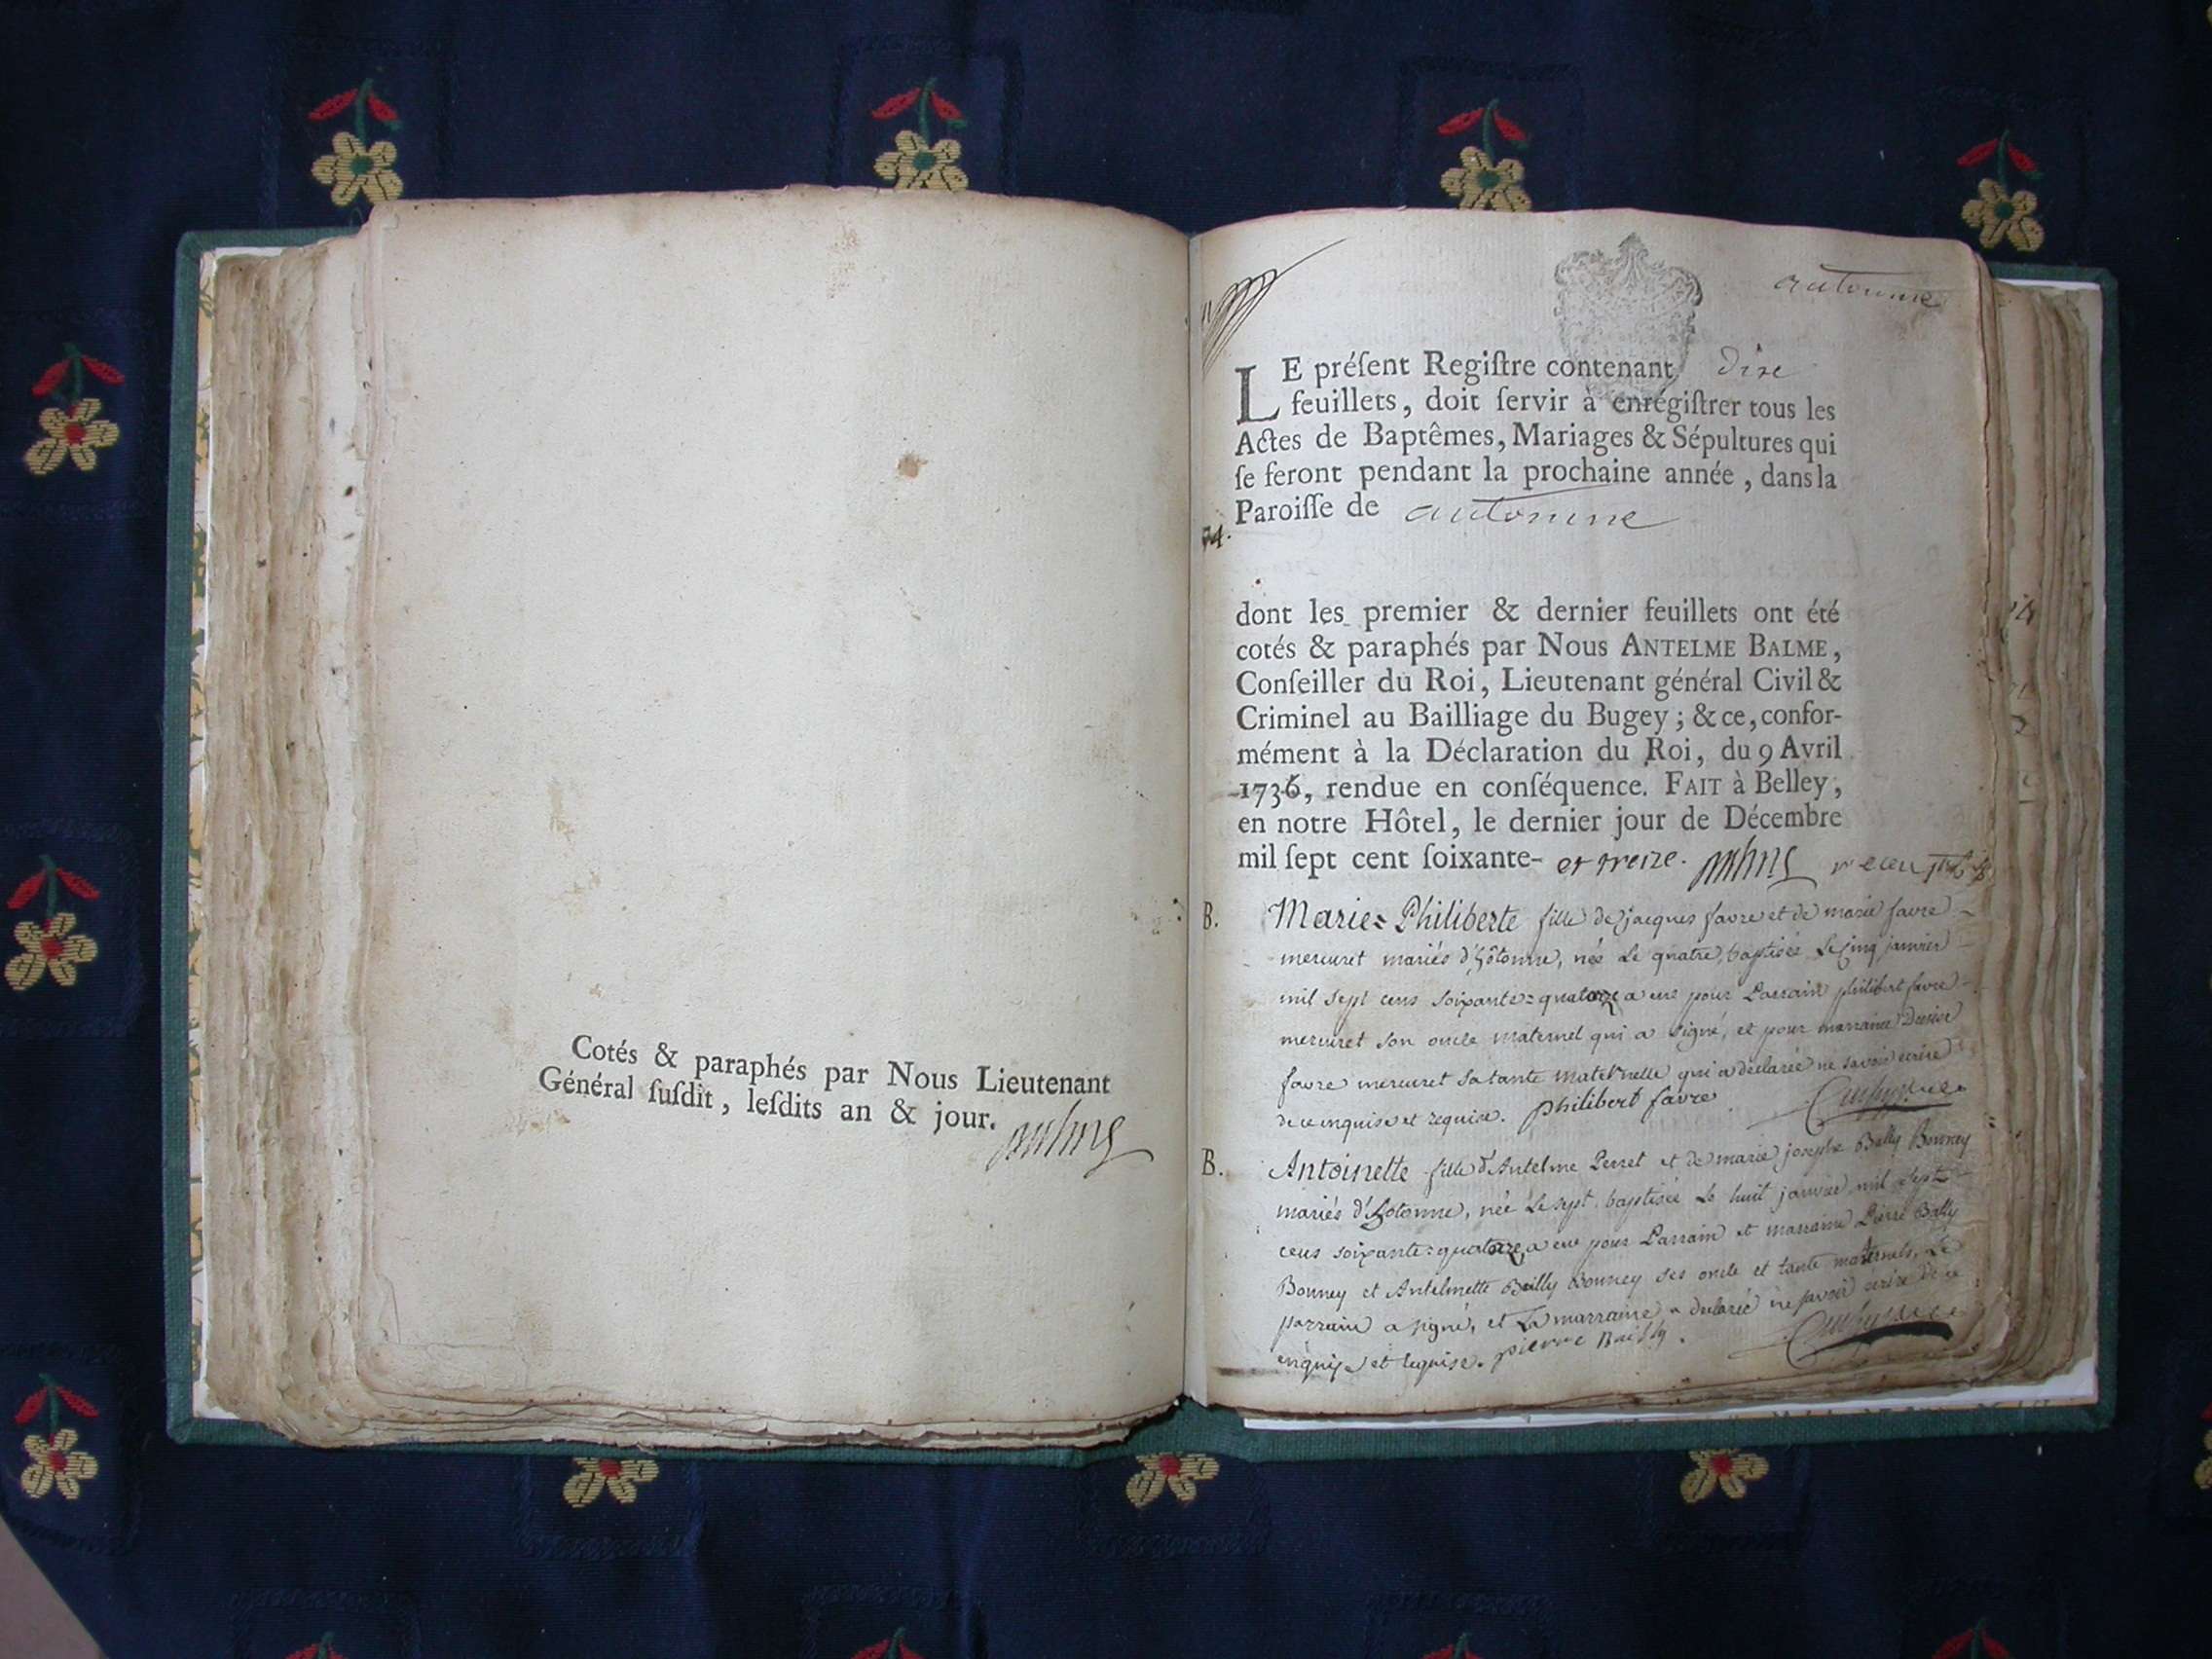 Cotés & paraphés par Nous Lieutenant
Général ſuſdit, leſdits an & jour.
autonne
LE préſent Regiſtre contenant dixe
feuillets, doit ſervir à enrégiſtrer tous les
Actes de Baptêmes, Mariages & Sépultures qui
ſe feront pendant la prochaine année, dans la
Paroiſſe de autonne
74.
dont les premier & dernier feuillets ont été
cotés & paraphés par Nous ANTELME BALME,
Conſeiller du Roi, Lieutenant général Civil &
Criminel au Bailliage du Bugey; & ce, confor-
mément à la Déclaration du Roi, du 9 Avril
1736, rendue en conſéquence. FAIT à Belley,
en notre Hôtel, le dernier jour de Décembre
mil ſept cent ſoixante- et treize.
B. Marie=Philiberte fille de jacques favre et de marie favre
mercuret mariés d'hôtonne, née le quatre, baptisée le cinq janvier
mil sept cens soixante=quatorze a eue pour Parrain philibert favre
mercuret son oncle maternel qui a signé, et pour marraine
favre mercuret sa tante maternelle qui a déclarée ne savoir écrire
de ce enquise et requise. philibert favre
B. Antoinette fille d'Antelme Perret et de marie josephe Bailly Bonney
mariés d'hotonne, née le sept, baptisée le huit janvier mil sept
cens soixante=quatorze, a eue pour Parrain et marraine Pierre Bailly
Bonney et Antelmette Bailly Bonney ses oncle et tante maternels, Le
parrain a signé, et La marraine a déclarée ne savoir écrire de ce
enquise et requise. pierre Bailly.